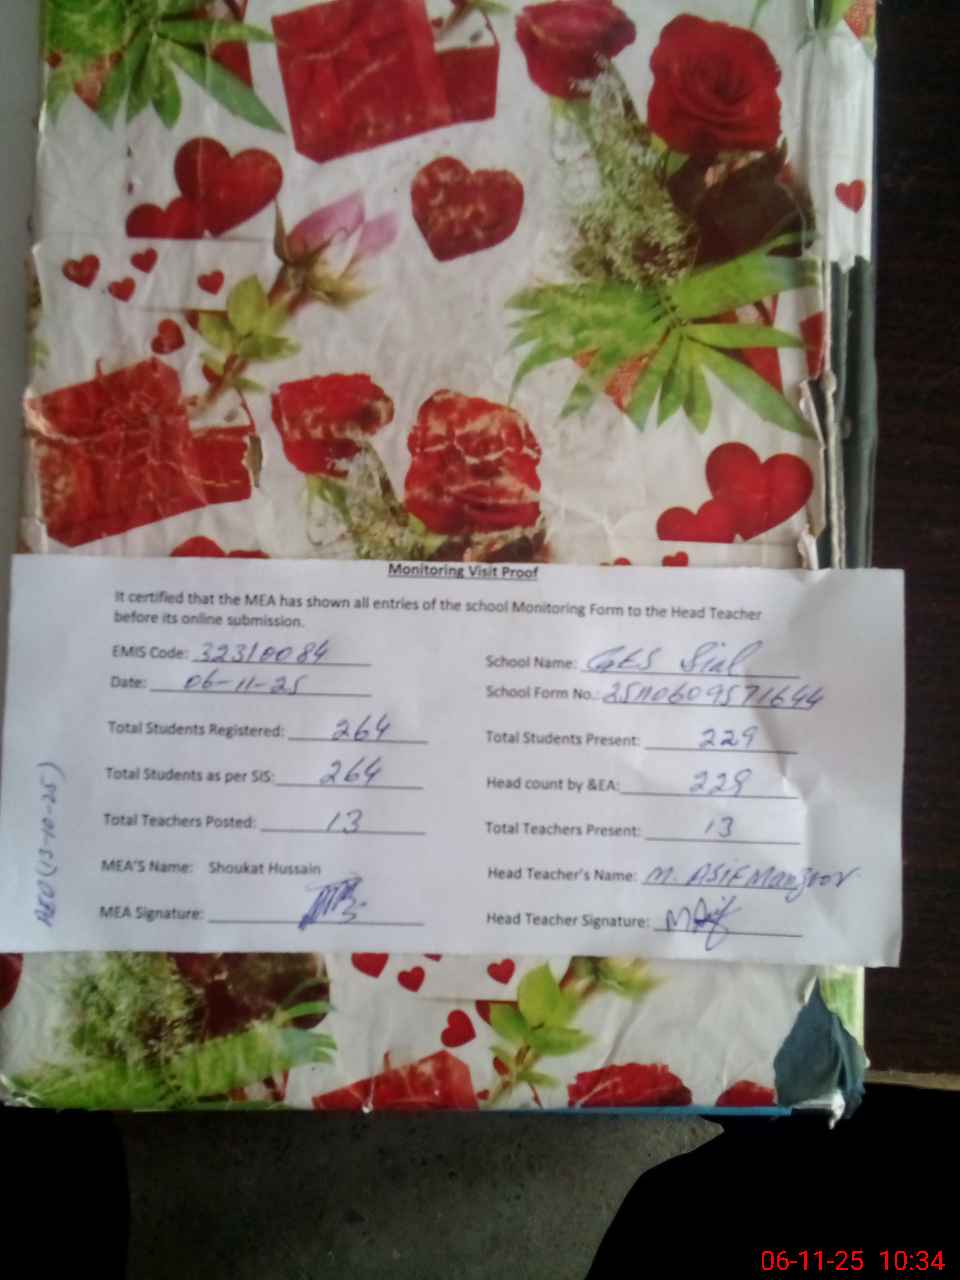 Monitoring Visit Proof
It certified that the MEA has shown all entries of the school Monitoring Form to the Head Teacher
before its online submission.
EMIS Code: 32310084
School Name: GES Sial
Date: 06-11-25
School Form No.: 25110609571644
Total Students Registered: 264
Total Students Present: 229
Total Students as per SIS: 264
Head count by &EA: 229
Total Teachers Posted: 13
Total Teachers Present: 13
MEA'S Name: Shoukat Hussain
Head Teacher's Name: M. Asif Manzoor
MEA Signature:
Head Teacher Signature: M Asif
AEO (13-10-25)
06-11-25 10:34